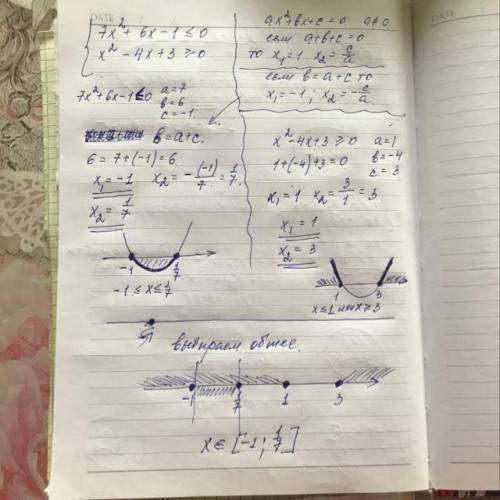 DATE
DATE
7x² + 6x - 1 ≤ 0
x² - 4x + 3 ≥ 0
ax² + bx + c = 0 a ≠ 0
если a + b + c = 0
то x₁ = 1 x₂ = c/a
если b = a + c то
x₁ = -1; x₂ = -c/a
7x² + 6x - 1 ≤ 0
a = 7
b = 6
c = -1
b = a + c.
6 = 7 + (-1) = 6
x₁ = -1 x₂ = -(-1)/7 = 1/7.
x₂ = 1/7
-1 1/7
-1 ≤ x ≤ 1/7
x² - 4x + 3 ≥ 0
a = 1
b = -4
c = 3
1 + (-4) + 3 = 0
x₁ = 1 x₂ = 3/1 = 3
x₁ = 1
x₂ = 3
1 3
x ≤ 1 или x ≥ 3
выбираем общее.
-1 1/7 1 3
x ∈ [-1; 1/7]